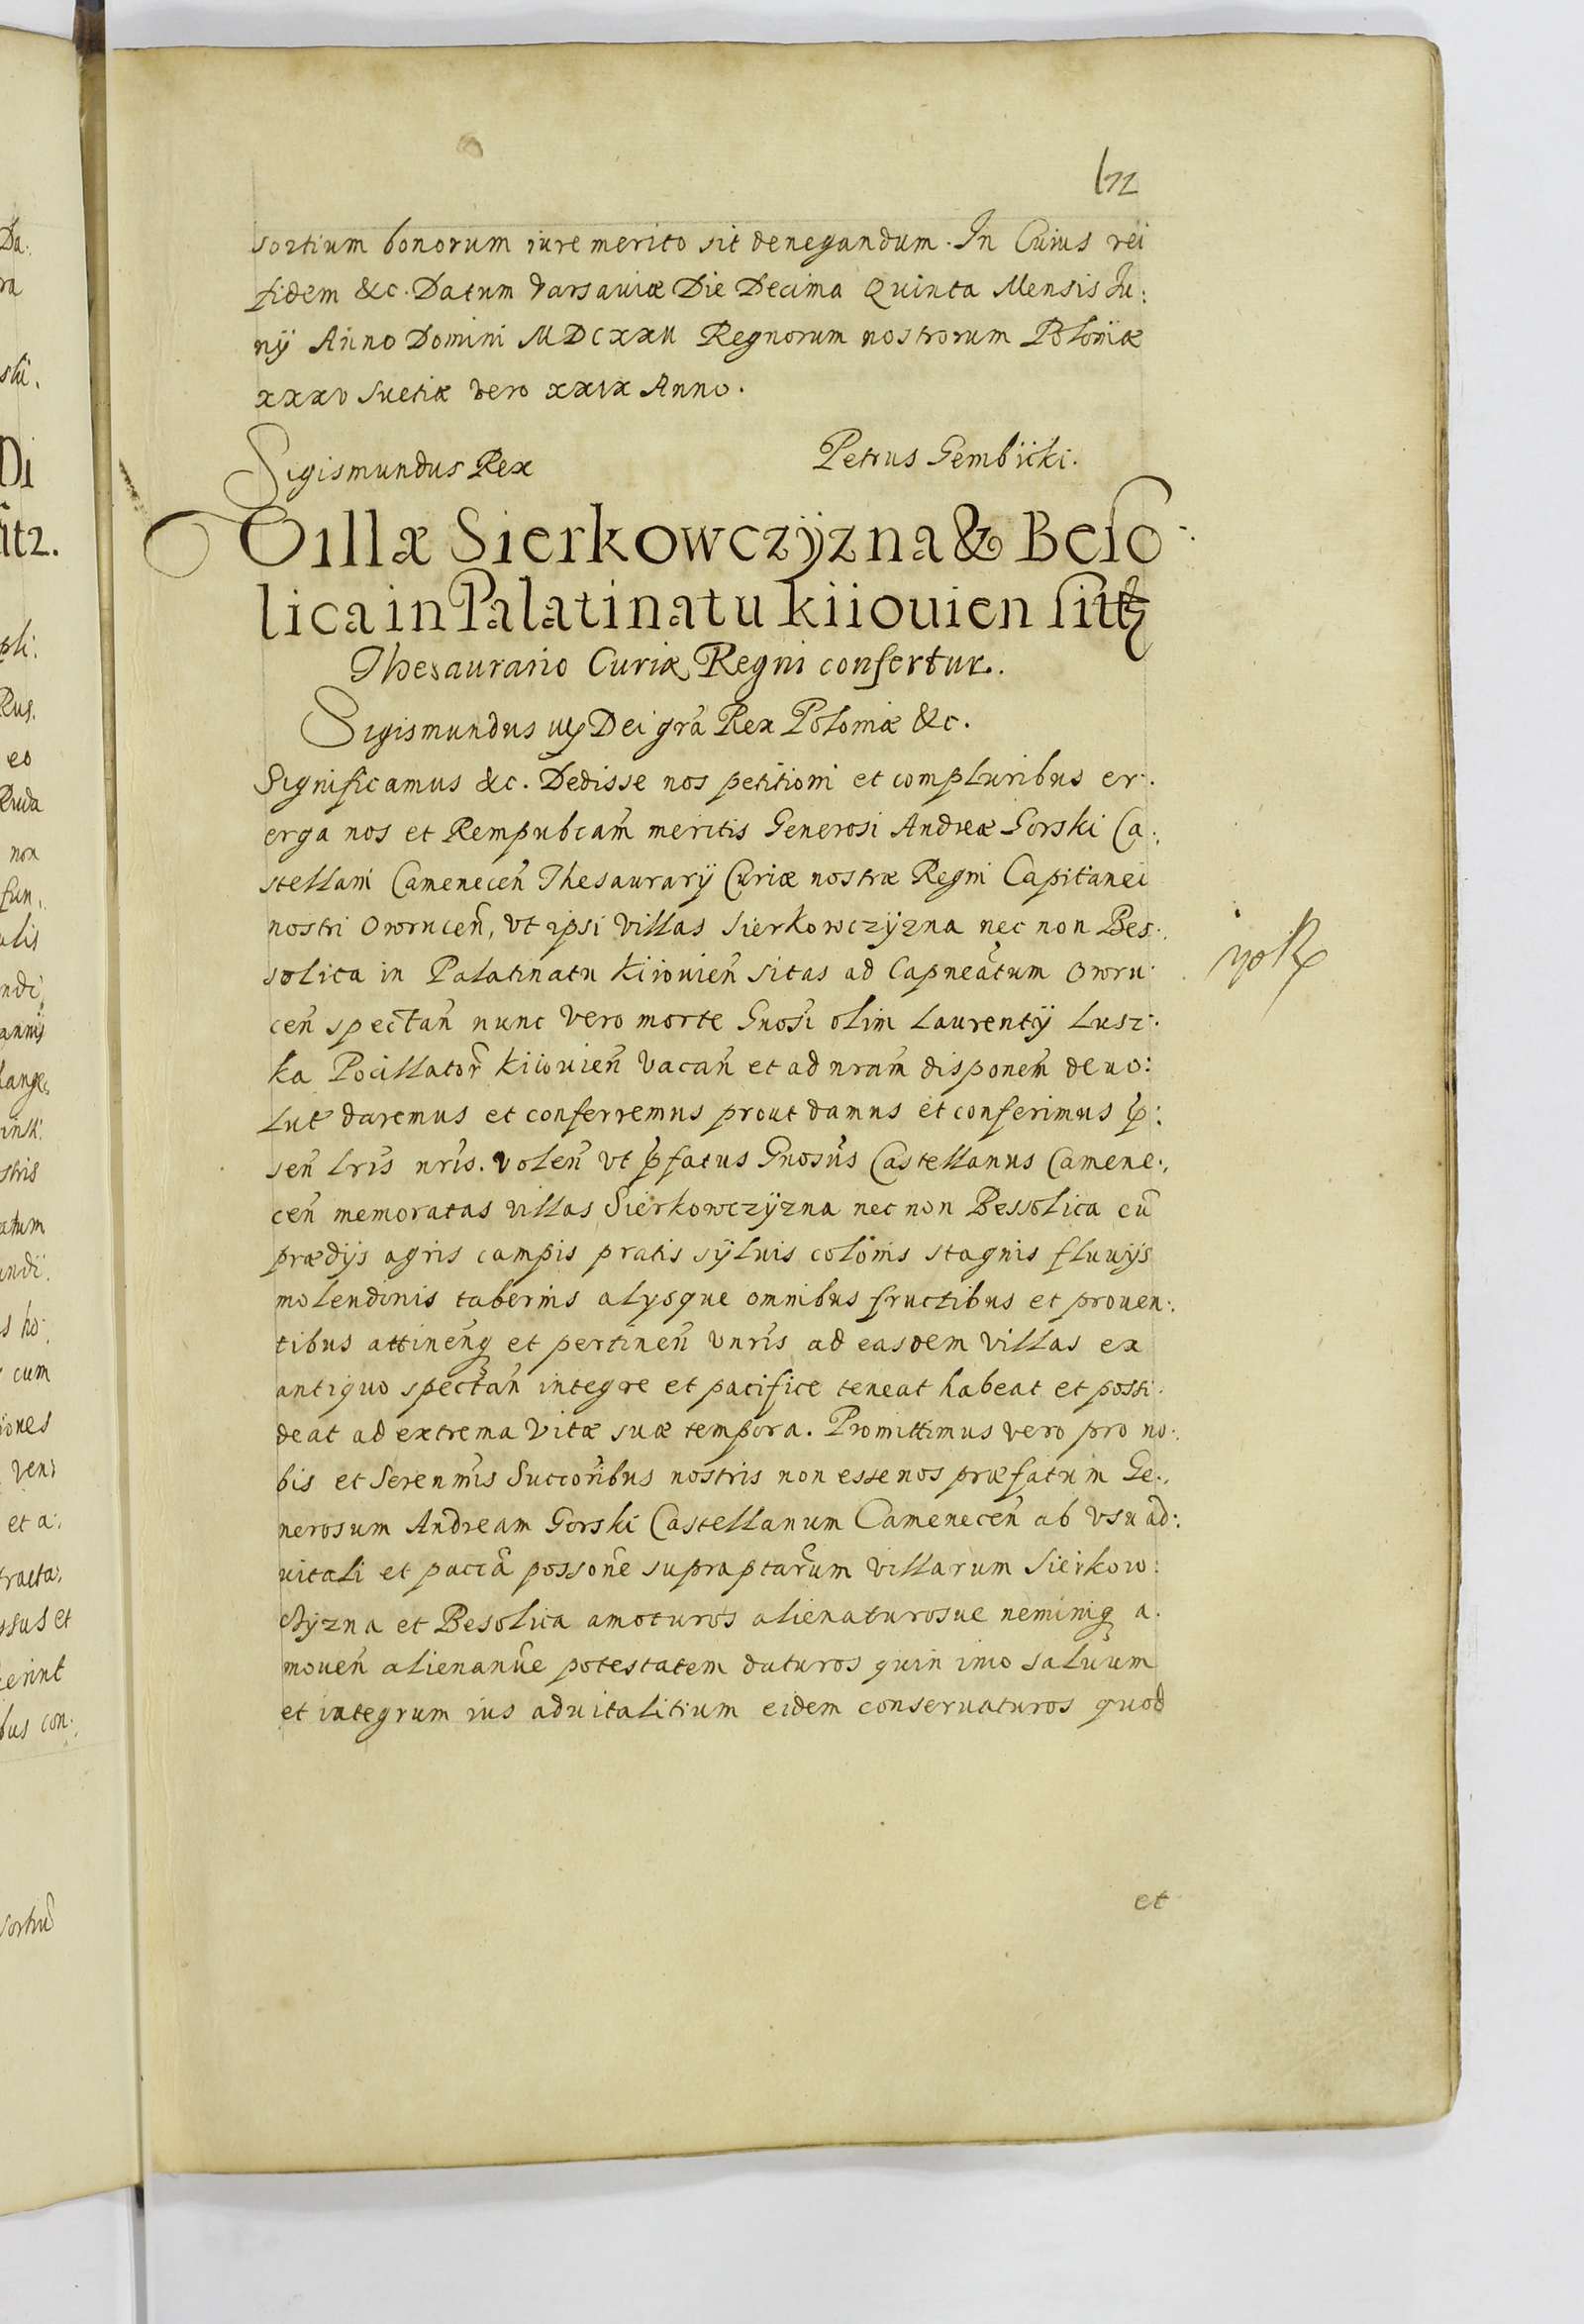 172
sortium bonorum iure merito sit denegandum. In Cuius rei
fidem &c. Datum Varsauiæ Die Decima Quinta Mensis Iu:
nÿ Anno Domini MDCXXII Regnorum nostrorum Poloniæ
xxxv Suetiæ vero xxix Anno.
Sigismundus Rex Petrus Gembicki.
Villæ Sierkowczÿzna & Beso
lica in Palatinatu kiiouien sitæ
Thesaurario Curiæ Regni confertur.
Sigismundus Dei grã Rex Poloniæ &c.
Significamus &c. Dedisse nos petitioni et compluribus er:
erga nos et Rempubcam̃ meritis Generosi Andreæ Gorski Ca:
stellani Camenecen̄ Thesaurarÿ Curiæ nostræ Regni Capitanei
nostri Owrucen̄, vt ipsi villas Sierkowczÿzna nec non Bes:
solica in Palatinatu kiiouien̄ sitas ad Capneãtum Owru:
cen̄ spectan̄ nunc vero morte Gnosi olim Laurentÿ Lusz:
ka Pocillator̃ kiiouien̄ vacan̄ et ad nram̃ disponem̃ deuo:
lut̃ daremus et conferremus prout damus et conferimus p̃:
sen̄ lris̃ nris̃. volen̄ vt p̃fatus Gnosus̃ Castellanus Camene:
cen̄ memoratas villas Sierkowczÿzna nec non Bessolica cũ
prædÿs agris campis pratis sÿluis colonis stagnis fluuÿs
molendinis tabernis alÿsque omnibus fructibus et prouen:
tibus attinen̄q et pertinen̄ vnris̃ ad easdem villas ex
antiquo spectan̄ integre et pacifice teneat habeat et possi:
deat ad extrema vitæ suæ tempora. Promittimus vero pro no:
bis et Serenmis̃ Succoribus̃ nostris non esse nos præfatum Ge:
nerosum Andream Gorski Castellanum Camenecen̄ ab vsu ad:
uitali et paccã possone̅ supraptarum̃ villarum Sierkow:
czÿzna et Besolica amoturos alienaturosue neminiq a:
mouen̄ alienan̄ue potestatem daturos quin imo saluum
et integrum ius aduitalitium eidem conseruaturos quod
et